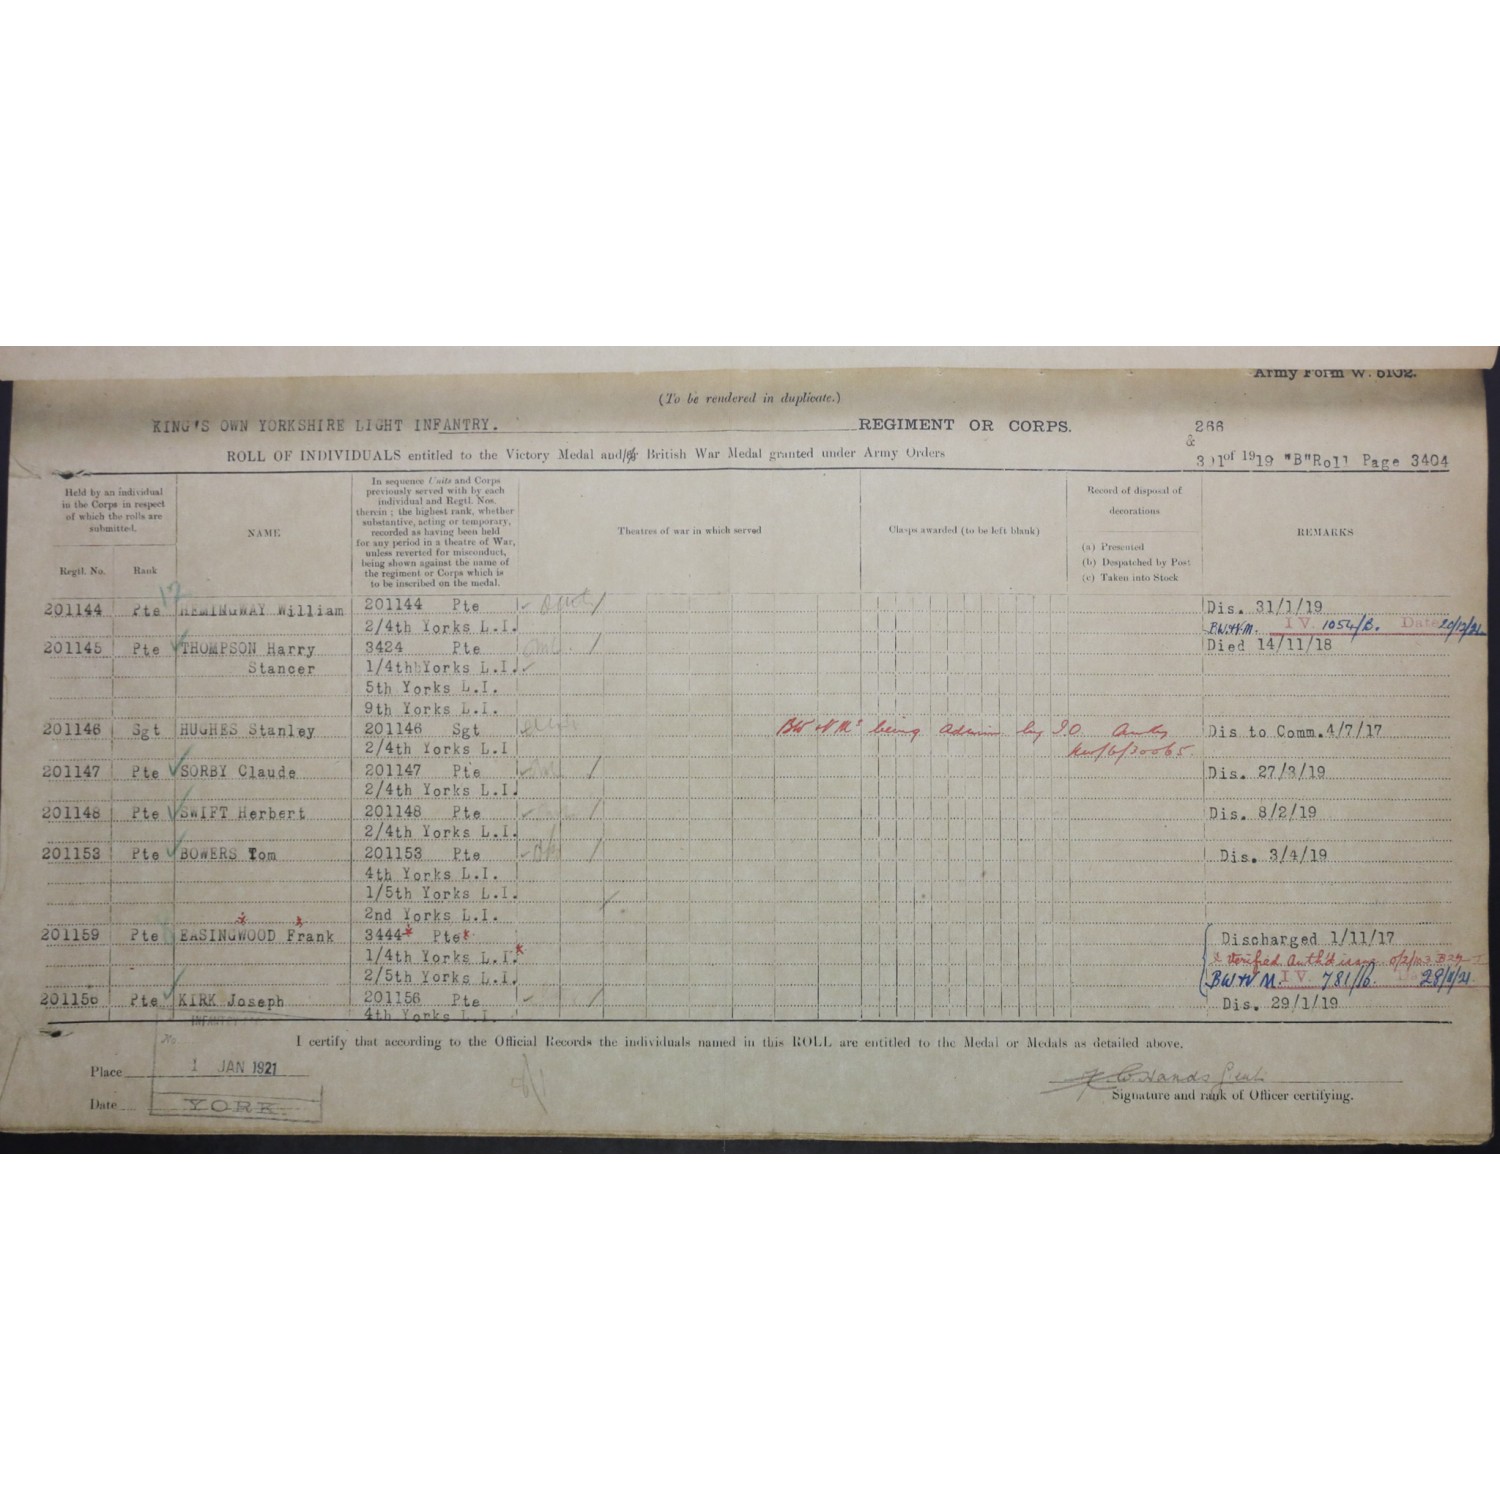 Army Form W. 5102.
(To be rendered in duplicate.)
KING'S OWN YORKSHIRE LIGHT INFANTRY. REGIMENT OR CORPS. 266
&
ROLL OF INDIVIDUALS entitled to the Victory Medal and/or British War Medal granted under Army Orders 301 of 1919 "B"Roll Page 3404
Held by an individual
in the Corps in respect
of which the rolls are
submitted.
Regtl. No. Rank
NAME
In sequence Units and Corps
previously served with by each
individual and Regtl. Nos.
therein ; the highest rank, whether
substantive, acting or temporary,
recorded as having been held
for any period in a theatre of War,
unless reverted for misconduct,
being shown against the name of
the regiment or Corps which is
to be inscribed on the medal.
Theatres of war in which served
Clasps awarded (to be left blank)
Record of disposal of
decorations
(a) Presented
(b) Despatched by Post
(c) Taken into Stock
REMARKS
201144 Pte HEMINGWAY William 201144 Pte Dis. 31/1/19
2/4th Yorks L.I. BW&VM. IV. 1054/B. Date 20/12/21
201145 Pte THOMPSON Harry 3424 Pte Died 14/11/18
Stancer 1/4th Yorks L.I.
5th Yorks L.I.
9th Yorks L.I.
201146 Sgt HUGHES Stanley 201146 Sgt being admin by I.O. Dis to Comm. 4/7/17
2/4th Yorks L.I
201147 Pte SORBY Claude 201147 Pte Dis. 27/3/19
2/4th Yorks L.I.
201148 Pte SWIFT Herbert 201148 Pte Dis. 8/2/19
2/4th Yorks L.I.
201153 Pte BOWERS Tom 201153 Pte Dis. 3/4/19
4th Yorks L.I.
1/5th Yorks L.I.
2nd Yorks L.I.
201159 Pte EASINGWOOD Frank 3444 Pte Discharged 1/11/17
1/4th Yorks L.I. verified
2/5th Yorks L.I. BW&VM. IV. 781/B. 28/11/21
201156 Pte KIRK Joseph 201156 Pte Dis. 29/1/19
4th Yorks L.I.
I certify that according to the Official Records the individuals named in this ROLL are entitled to the Medal or Medals as detailed above.
INFANTRY
No
Place 1 JAN 1921
Date YORK.
Signature and rank of Officer certifying.